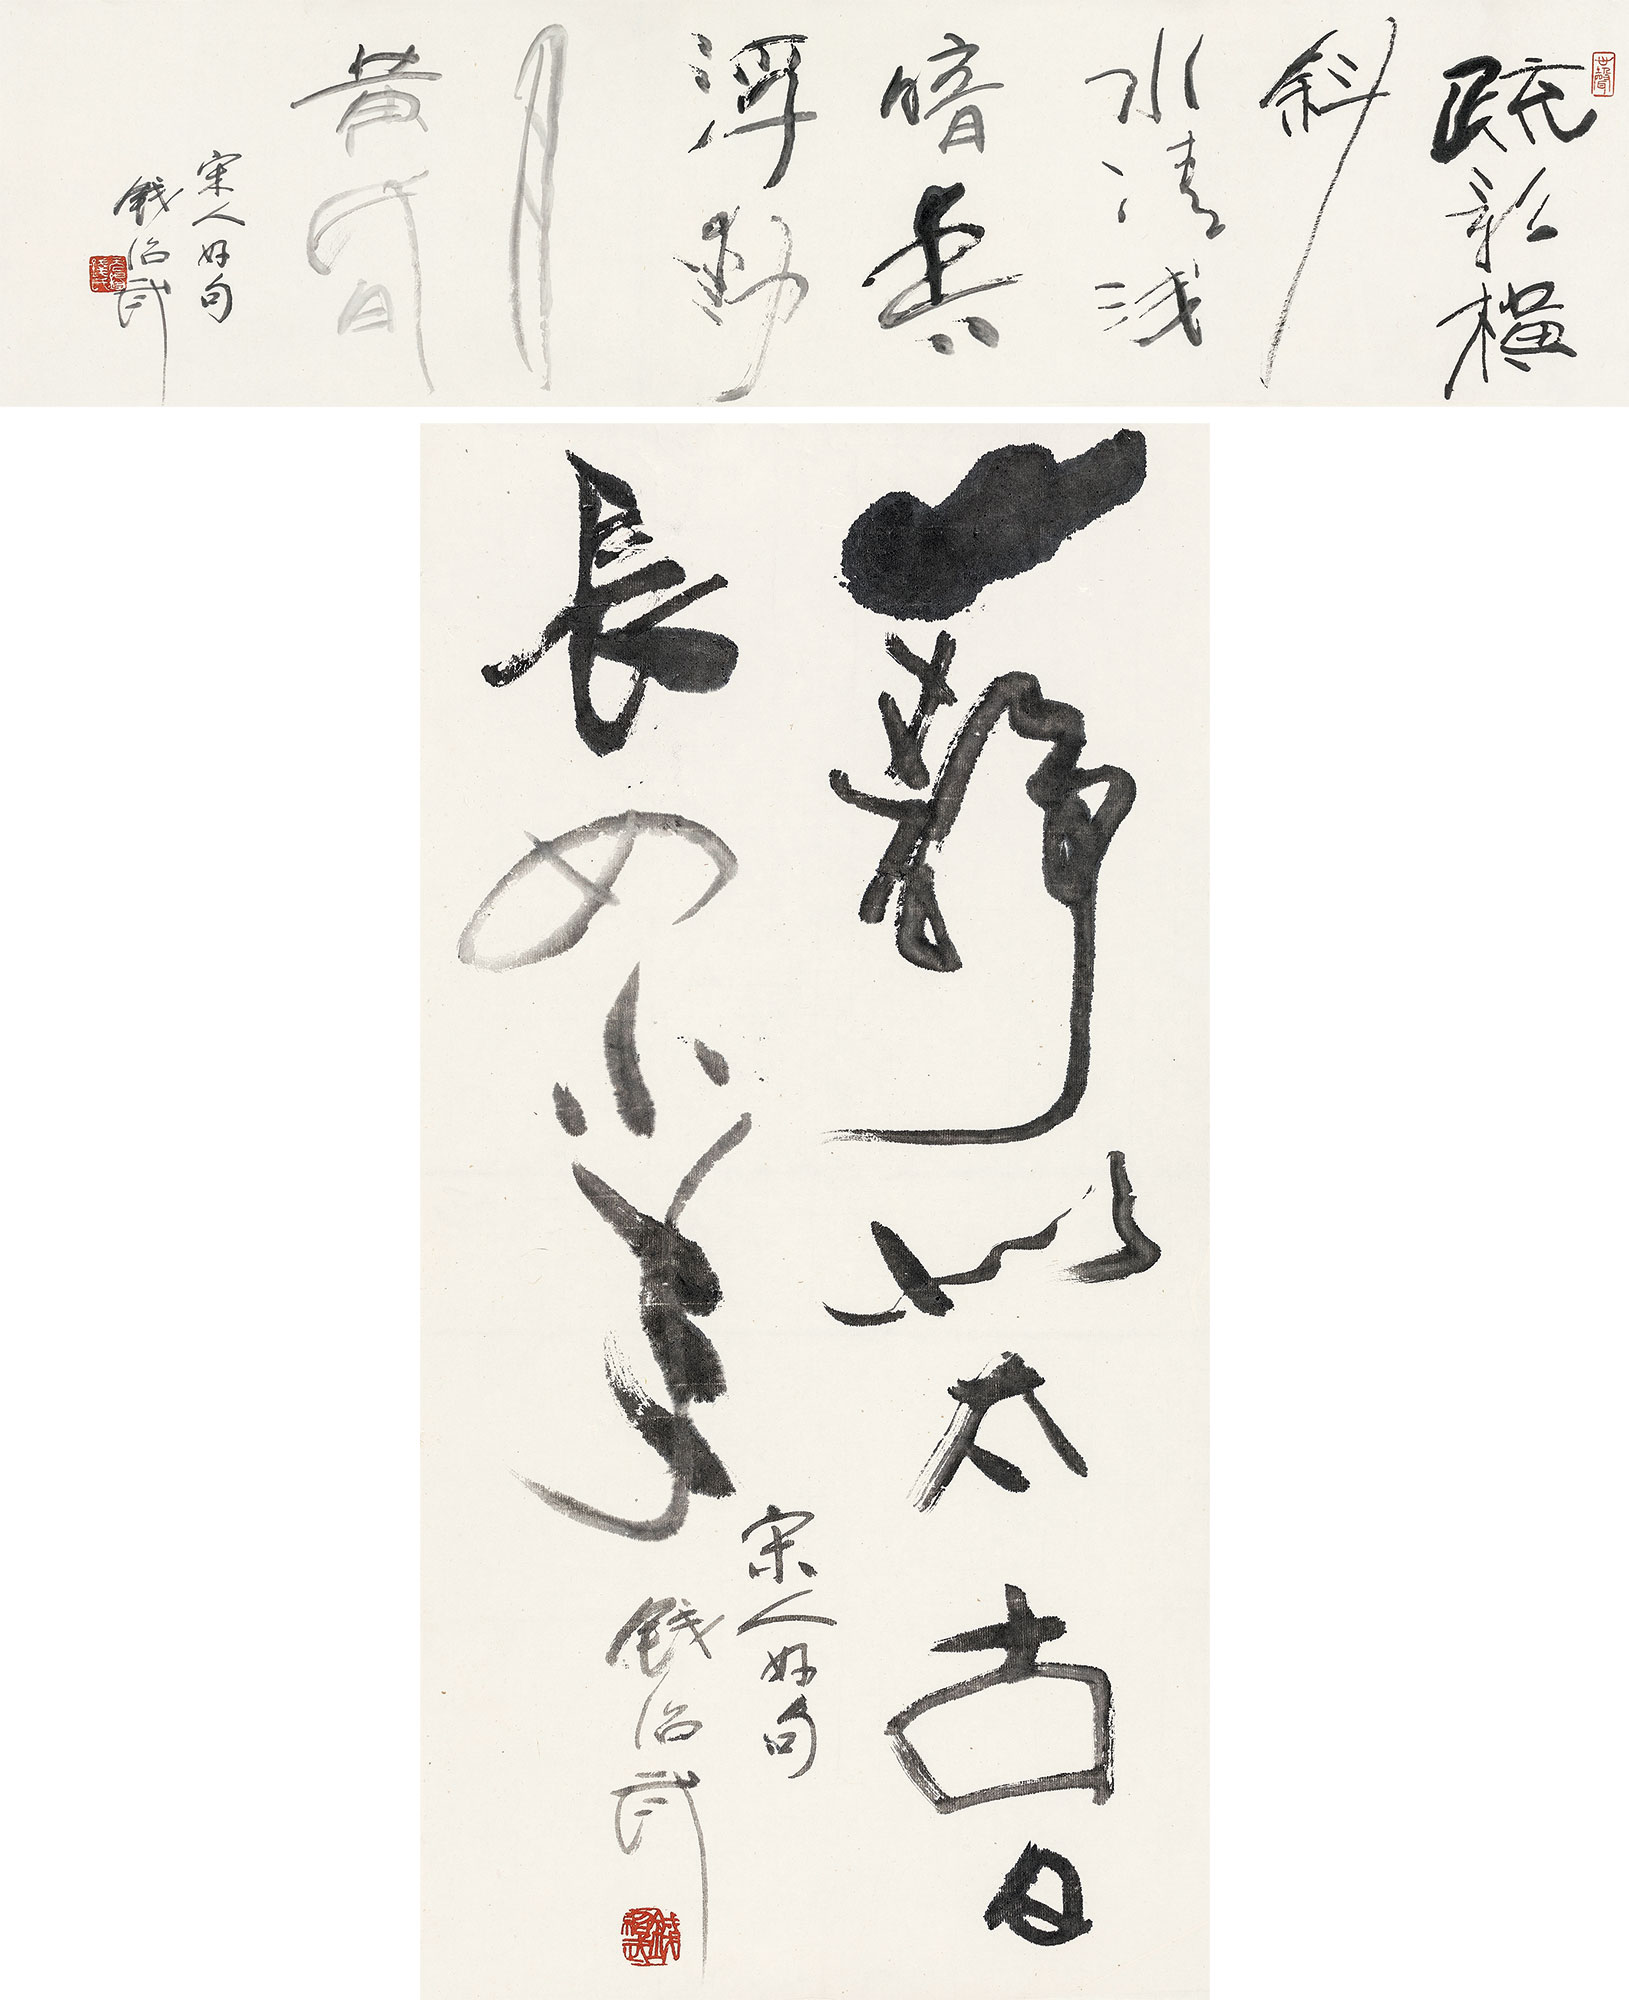 疏影横
斜
水清浅
暗香
浮動
月
黄昏
宋人好句
钱绍武
山静似太古日
長如小年
宋人好句
钱绍武